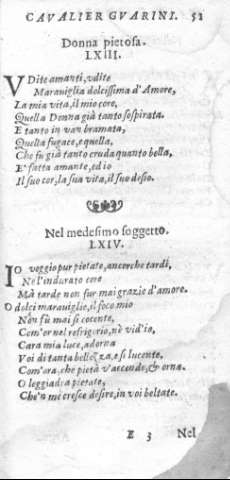 CAVALIER GVARINI. 51
Donna pietosa.
LXIII.
VDite amanti, vdite
Marauiglia dolcissima d'Amore,
La mia vita, il mio core,
Quella Donna già tanto sospirata.
E tanto in van bramata,
Quella fugace, e quella,
Che fu già tanto cruda quanto bella,
E' fatta amante, ed io
Il suo cor, la sua vita, il suo desio.
Nel medesimo soggetto.
LXIV.
IO veggio pur pietate, ancorche tardi,
Nel'indurato core
Ma tarde non fur mai grazie d'amore.
O dolci marauiglie, il foco mio
Non fù mai sì cocente,
Com'or nel refrigerio, nè vid'io,
Cara mia luce, adorna
Voi di tanta bellezza, e sì lucente,
Com'ora, che pietà v'accende, & orna.
O leggiadra pietate,
Che'n me cresce desire, in voi beltate.
E 3 Nel